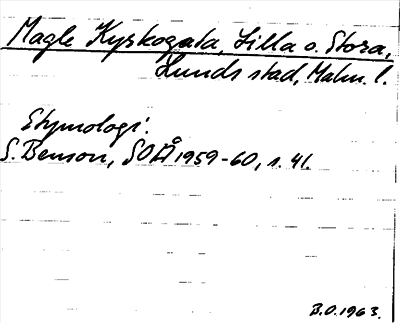 Magle Kyrkogata, Lilla o. Stora,
Lunds stad, Malm. l.
Etymologi:
S. Benson, SOÅ 1959-60, s. 41.
B.O. 1963.